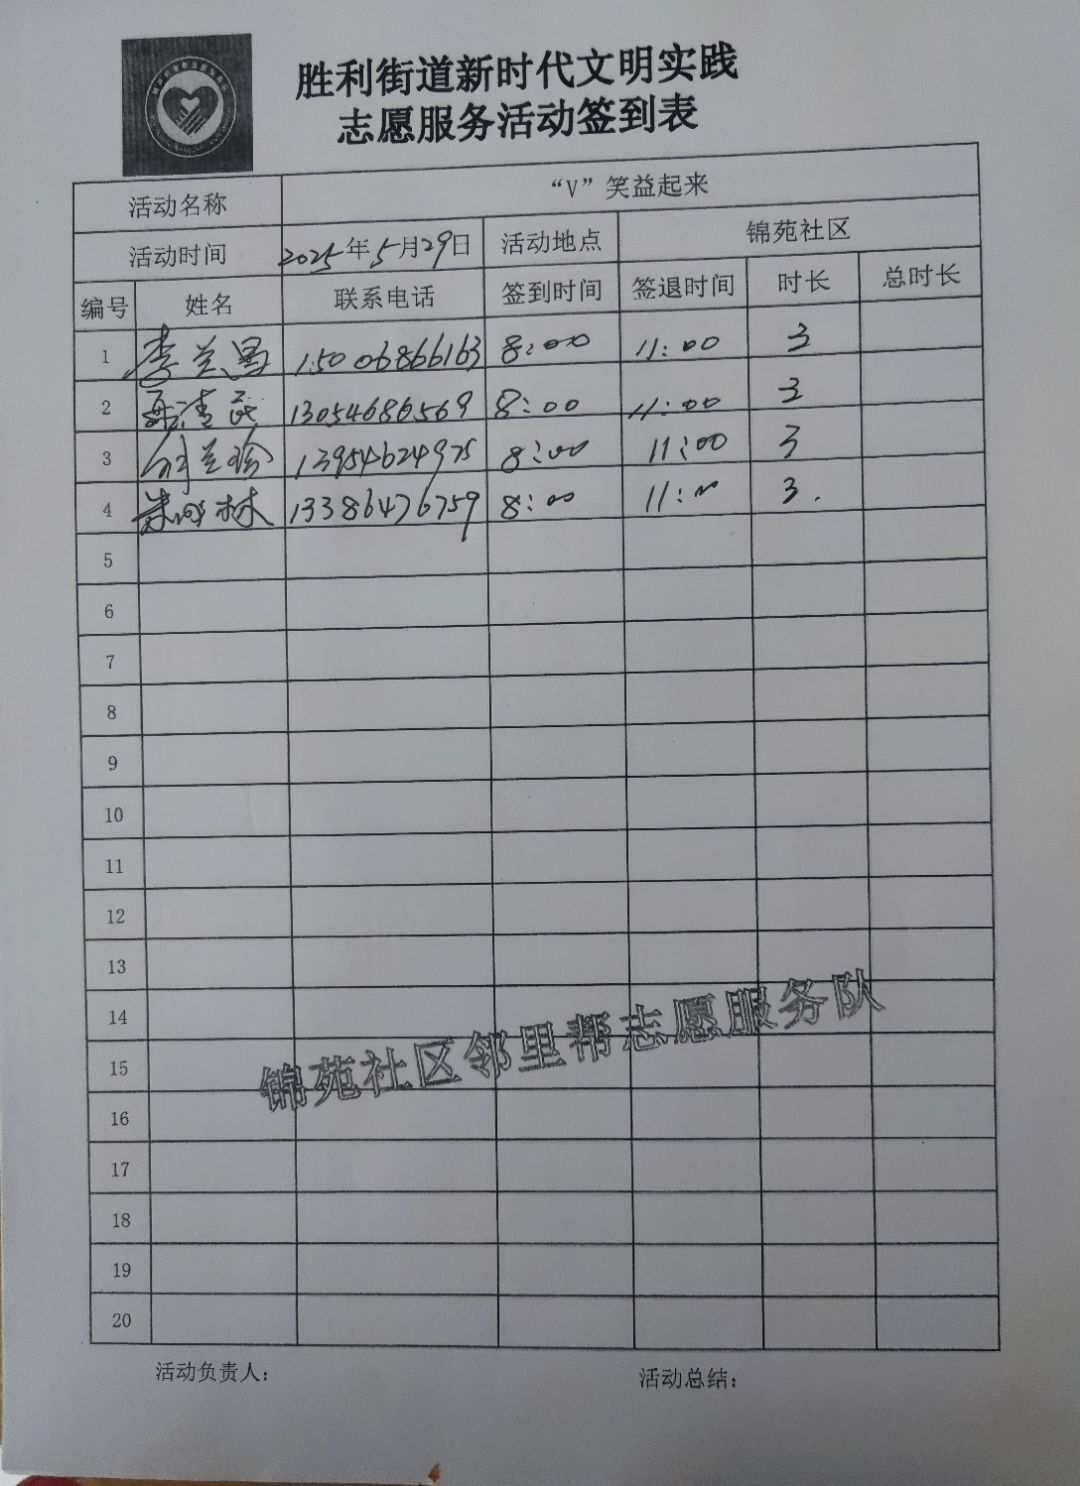 胜利街道新时代文明实践
志愿服务活动签到表
活动名称 “V”笑益起来
活动时间 2025年5月29日 活动地点 锦苑社区
编号 姓名 联系电话 签到时间 签退时间 时长 总时长
1 李兰 15006866163 8:00 11:00 3
2 清 13054686569 8:00 11:00 3
3 兰珍 13954624975 8:00 11:00 3
4 林 13386476759 8:00 11:00 3.
5
6
7
8
9
10
11
12
13
14
锦苑社区邻里帮志愿服务队
15
16
17
18
19
20
活动负责人: 活动总结: